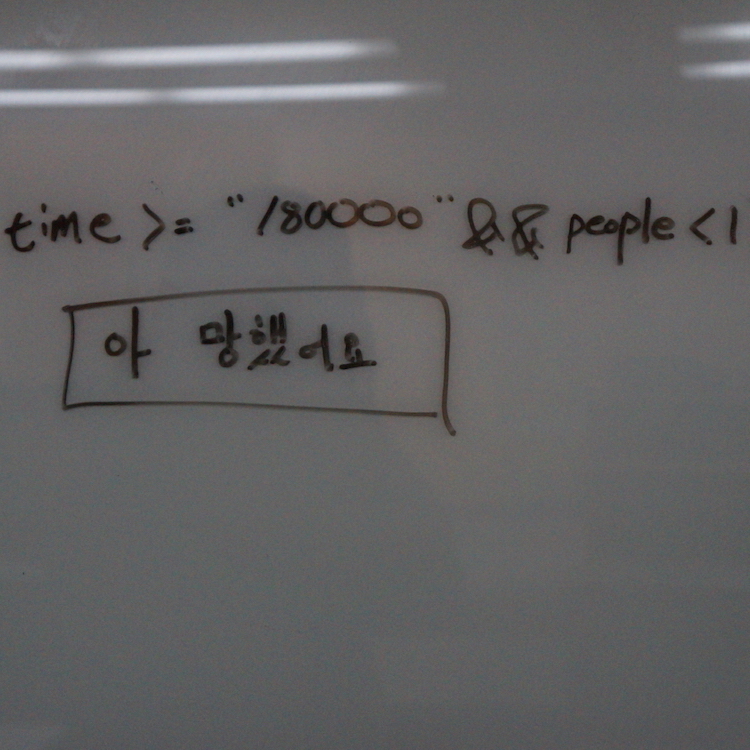 time >= "180000" && people < 1
아 망했어요